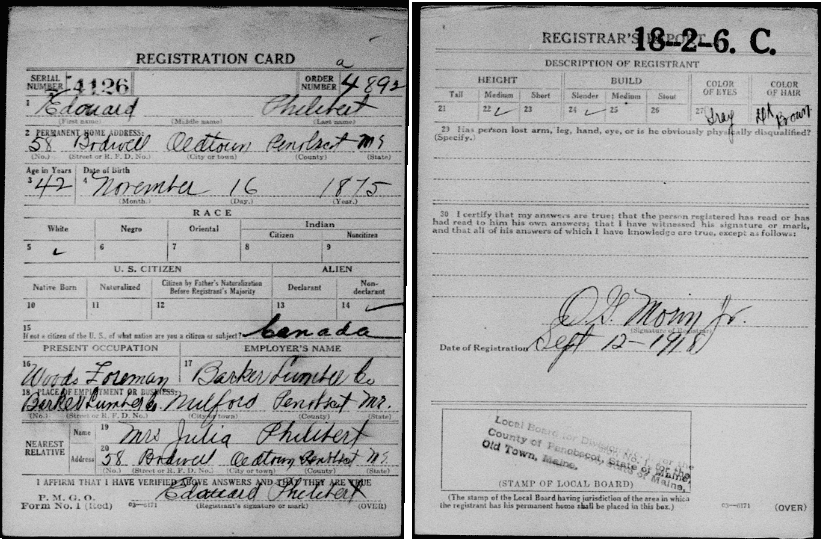 REGISTRATION CARD
a
SERIAL NUMBER 4126 ORDER NUMBER 4892
1 Edouard Philibert
(First name) (Middle name) (Last name)
2 PERMANENT HOME ADDRESS:
58 Bodwell Oldtown Penobscot Me
(No.) (Street or R. F. D. No.) (City or town) (County) (State)
Age in Years Date of Birth
3 42 4 November 16 1875
(Month.) (Day.) (Year.)
RACE
White Negro Oriental Indian
Citizen Noncitizen
5 ✓ 6 7 8 9
U. S. CITIZEN ALIEN
Native Born Naturalized Citizen by Father's Naturalization Before Registrant's Majority Declarant Non-declarant
10 11 12 13 14 ✓
15
If not a citizen of the U. S., of what nation are you a citizen or subject? Canada
PRESENT OCCUPATION EMPLOYER'S NAME
16 Woods Foreman 17 Barker Lumber Co
18 PLACE OF EMPLOYMENT OR BUSINESS:
Barker Lumber Co Milford Penobscot Me.
(No.) (Street or R. F. D. No.) (City or town) (County) (State)
NEAREST RELATIVE
Name 19 Mrs Julia Philibert
Address 20 58 Bodwell Oldtown Penobscot Me
(No.) (Street or R. F. D. No.) (City or town) (County) (State)
I AFFIRM THAT I HAVE VERIFIED ABOVE ANSWERS AND THAT THEY ARE TRUE
P. M. G. O.
Form No. 1 (Red) Edouard Philibert
(Registrant's signature or mark) (OVER)
03—6171
REGISTRAR'S REPORT
18-2-6. C.
DESCRIPTION OF REGISTRANT
HEIGHT BUILD COLOR OF EYES COLOR OF HAIR
Tall Medium Short Slender Medium Stout
21 22 ✓ 23 24 ✓ 25 26 27 Gray Dk Brown
29 Has person lost arm, leg, hand, eye, or is he obviously physically disqualified?
(Specify.)
30 I certify that my answers are true; that the person registered has read or has
had read to him his own answers; that I have witnessed his signature or mark,
and that all of his answers of which I have knowledge are true, except as follows:
O. G. Morin Jr.
(Signature of Registrar)
Date of Registration Sept 12-1918
Local Board for Division No. 1, for the
County of Penobscot, State of Maine,
Old Town, Maine.
(STAMP OF LOCAL BOARD)
(The stamp of the Local Board having jurisdiction of the area in which
the registrant has his permanent home shall be placed in this box.)
03—6171 (OVER)